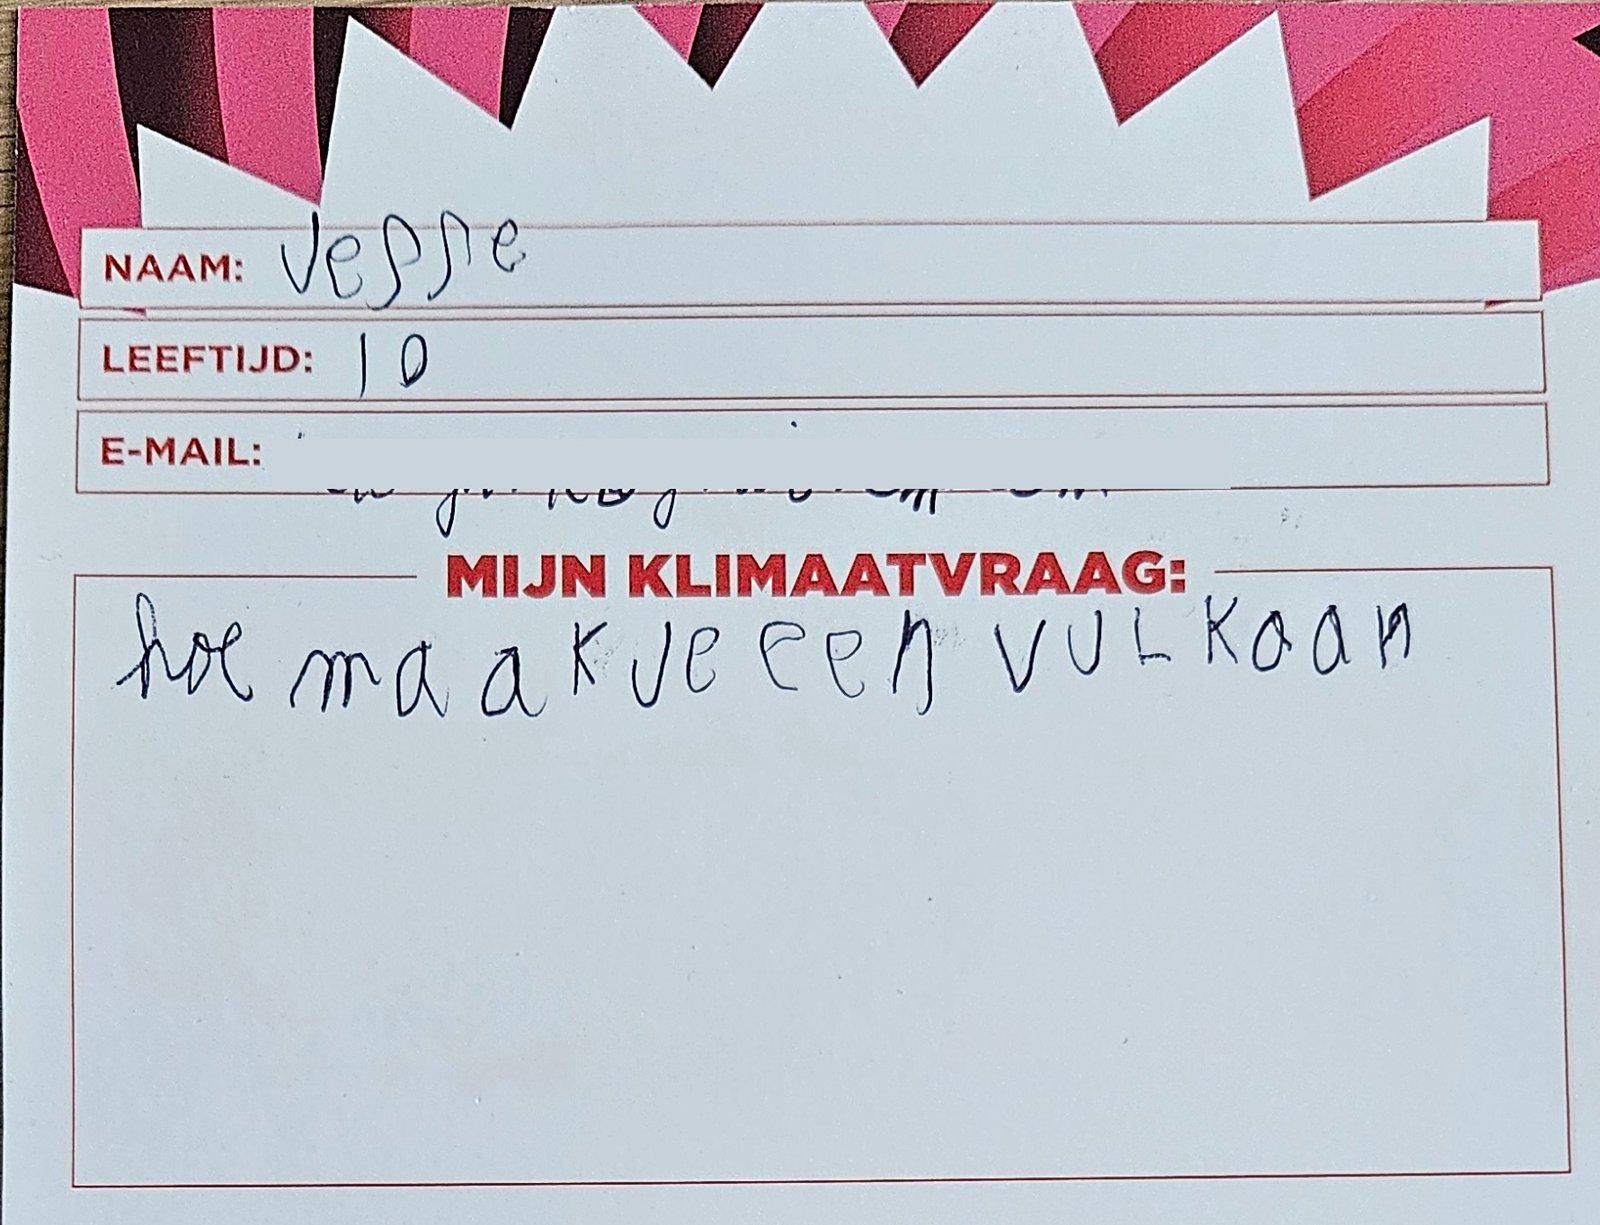 NAAM: Jesse
LEEFTIJD: 10
E-MAIL:
MIJN KLIMAATVRAAG:
hoe maak je een vulkaan